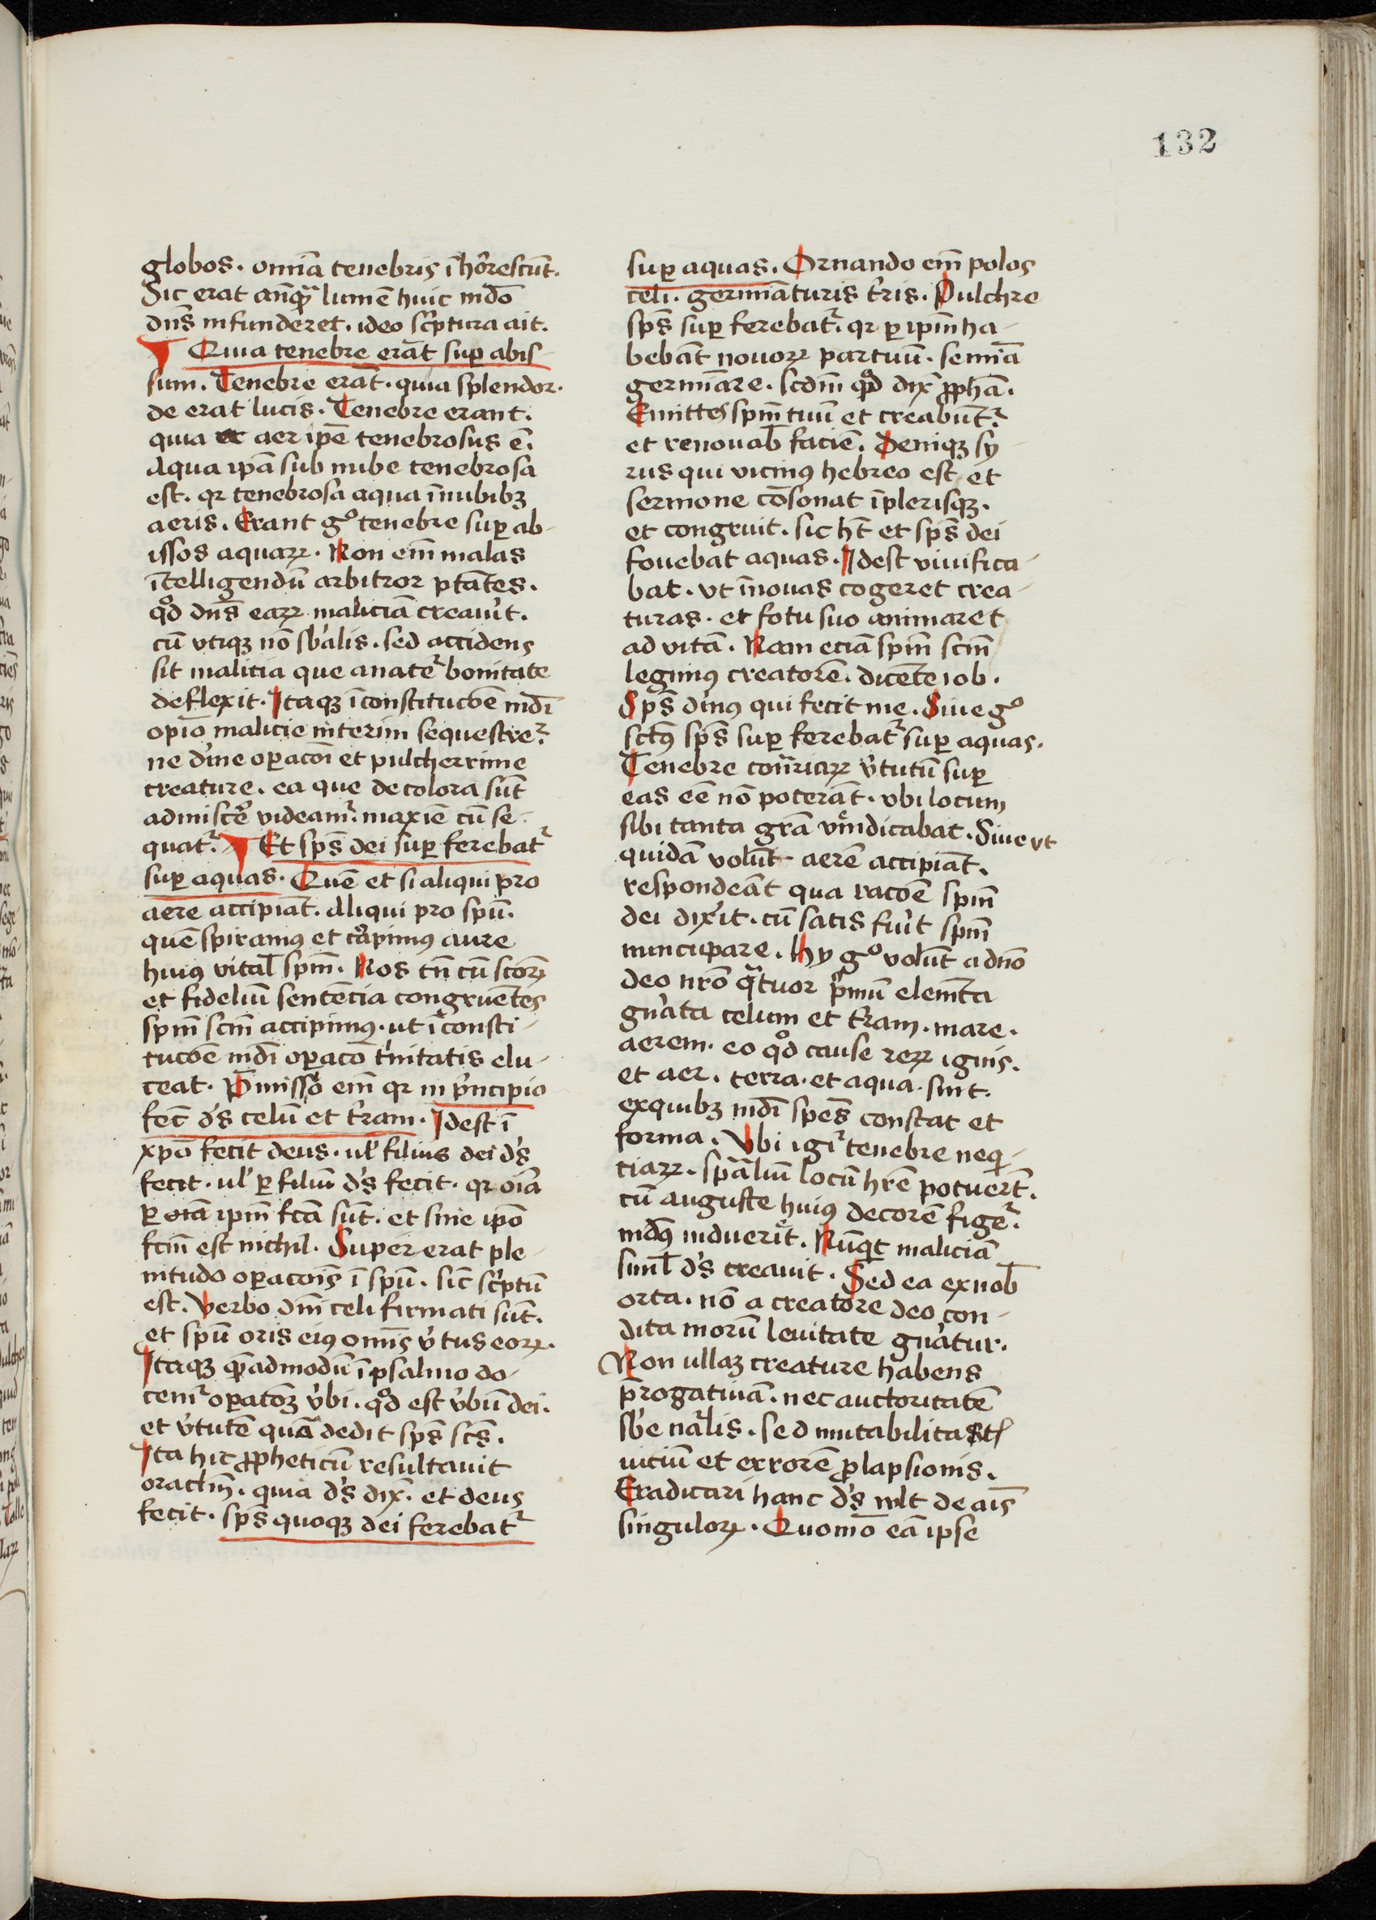 132
globos. omīa tenebris īhorrescūt.
Sic erat anqͣ lumē huic mdō
dn̄s infunderet. ideo scͥptura ait.
Quia tenebre erāt suꝑ abis
sum. Tenebre erāt. quia splendor.
de erat lucis. Tenebre erant.
quia aer ipē tenebrosus ē.
Aqua ipā sub nube tenebrosa
est. qr tenebrosa aqua ī nubibꝫ
aeris. Erant gͦ tenebre suꝑ ab-
issos aquaꝝ. Non em̄ malas
ītelligendū arbitror ptātes.
qͦd dn̄s eaꝝ maliciā creauit.
cū vtiqꝫ nō sb̓alis. sed accidens
sit malicia que a natᵉ bonitate
deflexit. Itaqꝫ ī constitucōē mdī
opīo malicie interim sequestreͬ.
ne dͥine oꝑacōi et pulcherrime
creature. ea que decolora sūt
admisceͬ videamͬ. maxīe cū se-
quatͬ. Et spūs dei suꝑ ferebatͬ
suꝑ aquas. Quē et si aliqui pro
aere accipiāt. Aliqui pro spū.
quē spiramꝰ et capimꝰ aure
huiꝰ vital̄ spm̄. Nos tn̄ cū scōꝝ
et fideliū sentēcia congruētes
spm̄ scm̄ accipimꝰ. ut ī consti-
tucōē mdī oꝑacō tͥnitatis elu-
ceat. P̄misso em̄ qr in pͥncipio
fec̄ dꝰs celū et tͬram. Idest ī
xpō fecit deus. ul̓ filius dei dꝰs
fecit. ul̓ ꝑ filiū dꝰs fecit. qr oīa
ꝑ oīa ipm̄ fcā sūt. et sine ipō
fcm̄ est nichil. Super erat ple-
nitudo oꝑacōīs ī spū. sic̄ scͥptū
est. Verbo dn̄i celi firmati sūt.
et spū oris eiꝰ omīs vͬtus eoꝝ.
Itaqꝫ quēadmodū ī psalmo do-
cemͬ oꝑacōꝫ vͬbi. qͦd est vͬbū dei.
et vͬtutē quā dedit spūs scūs.
Ita hic ꝓpheticū resultauit
oraclm̄. quia dꝰs dix̄. et deus
fecit. spūs quoqꝫ dei ferebatͬ
suꝑ aquas. Ornando em̄ polos
celi. germīaturis tͬris. Pulchre
spūs suꝑ ferebatͬ. qr ꝑ ipm̄ ha-
bebāt nouoꝝ partuū. semīa
germīare. scdm̄ qͦd dix̄ ꝓphā.
Emittes spm̄ tuū et creabūtͬ.
et renouab̄ faciē. Deniqꝫ sy-
rus qui vicinꝰ hebreo est et
sermone cōsonat ī plerisqꝫ.
et congruit. sic ht̄ et spūs dei
fouebat aquas. Idest viuifica-
bat. vt ī nouas cogeret crea-
turas. et fotu suo animaret
ad vitā. Nam eciā spm̄ scm̄
legimꝰ creatorē. dicēte iob.
Spūs dͥinꝰ qui fecit me. Siue gͦ
sctꝰ spūs suꝑ ferebatͬ suꝑ aquas.
Tenebre cont̄riaꝝ vͬtutū suꝑ
eas eē nō poterāt. vbi locum
sibi tanta grā vendicabat. Siue vt
quidā volūt aerē accipiāt.
respondeāt qua racōē spm̄
dei dix̄it. cū satis fuit spm̄
nuncupare. Hy gͦ volūt a dn̄o
deo nrō qͣtuor pͥmū elemēta
gn̓ata celum et tͬram. mare.
aerem. eo qͦd cause reꝝ ignis.
et aer. terra. et aqua. sint.
ex quibꝫ mdī spēs constat et
forma. Vbi igiͬ tenebre neqͥ-
ciaꝝ. spūaliū locū hr̄e potuerūt.
cū auguste huiꝰ decorē figeͬ.
mdꝰ induerit. Nūqͥt maliciā
siml̄ dꝰs creauit. Sed ea ex nob̄
orta. nō a creatore deo con-
dita morū leuitate gn̓atur.
Non ullaꝫ creature habens
p̄rogatiuā. nec auctoritatē
sb̓e naͬlis. sed mutabilitatis
uiciū et errorē ꝓlapsionis.
Eradicari hanc dꝰs vult de aīs
singuloꝝ. Quomō eā ipse